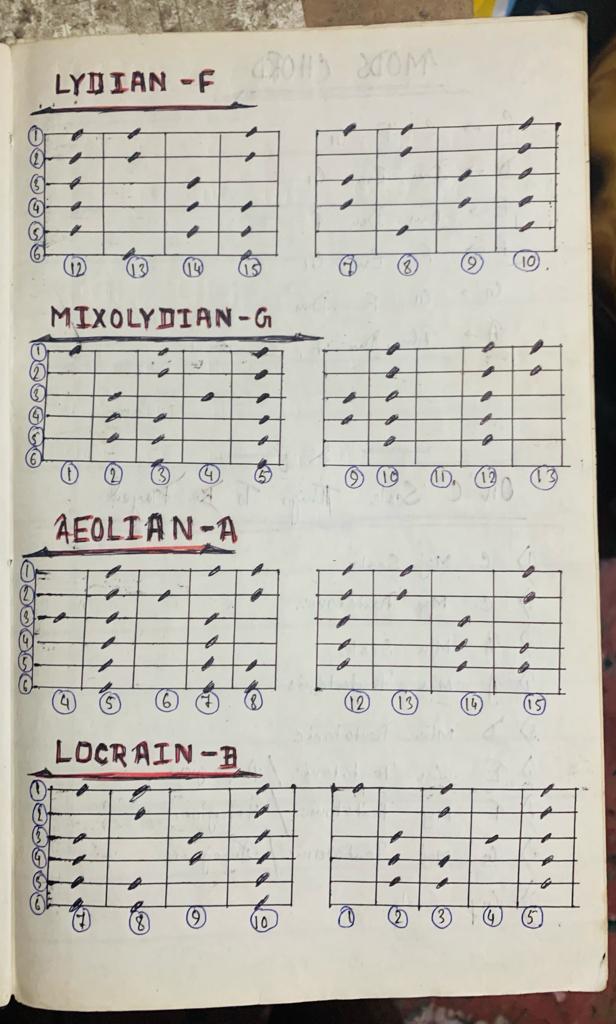 LYDIAN - F
1
2
3
4
5
6
12 13 14 15 7 8 9 10
MIXOLYDIAN - G
1
2
3
4
5
6
1 2 3 4 5 9 10 11 12 13
AEOLIAN - A
1
2
3
4
5
6
4 5 6 7 8 12 13 14 15
LOCRAIN - B
1
2
3
4
5
6
7 8 9 10 1 2 3 4 5